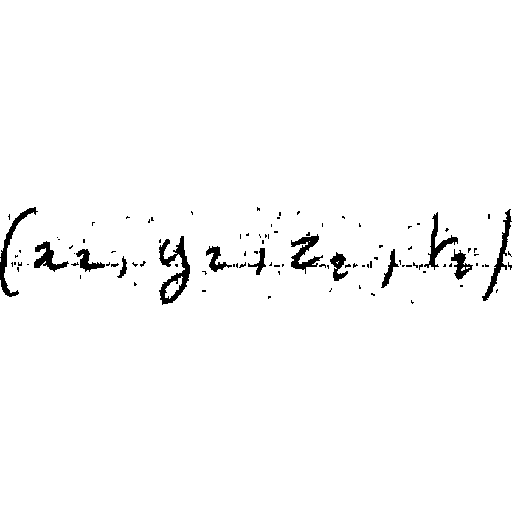 (x₂, y₂, z₂, r₂)